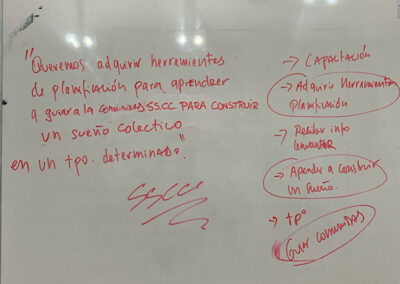 "Queremos adquirir herramientas
de planificación para aprender
a guiar a la comunidad SS.CC. PARA CONSTRUIR
un sueño colectivo
en un tpo. determinado"
SSCC
→ CAPACITACIÓN
→ Adquirir Herramientas
planificación
→ Recibir info
→ Aprender a construir
un sueño.
→ tpº
Guiar comunidas